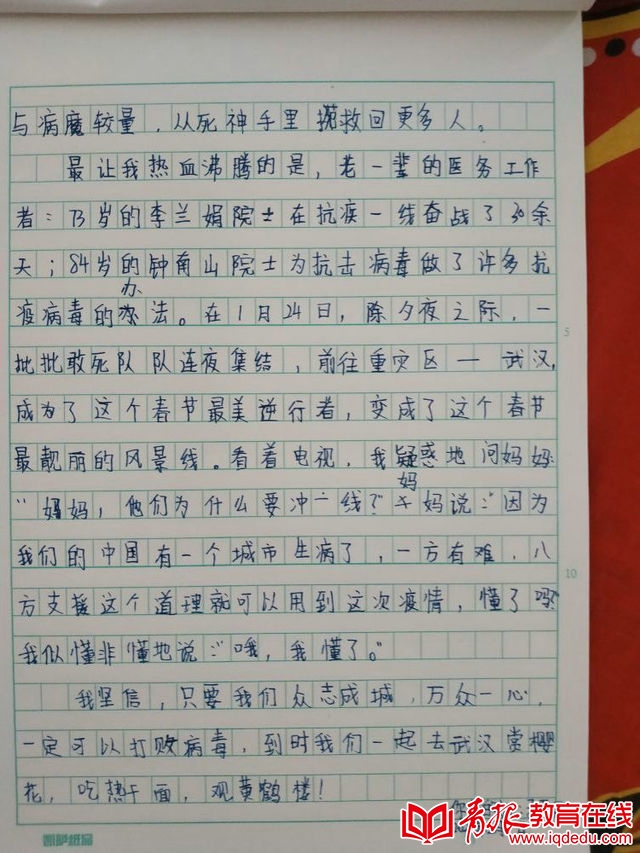 与病魔较量，从死神手里抢救回更多人。
最让我热血沸腾的是，老一辈的医务工作
者：73岁的李兰娟院士在抗疾一线奋战了30余
天；84岁的钟南山院士为抗击病毒做了许多抗
疫病毒的办法。在1月24日，除夕夜之际，一
批批敢死队队连夜集结，前往重灾区——武汉，
成为了这个春节最美逆行者，变成了这个春节
最靓丽的风景线。看着电视，我疑惑地问妈妈
“妈妈，他们为什么要冲一线？”妈妈说：“因为
我们的中国有一个城市生病了，一方有难，八
方支援这个道理就可以用到这次疫情，懂了吗”
我似懂非懂地说：“哦，我懂了。”
我坚信，只要我们众志成城，万众一心，
一定可以打败病毒，到时我们一起去武汉赏樱
花，吃热干面，观黄鹤楼！
5
10
凯萨纸品
青报教育在线
www.iqdedu.com